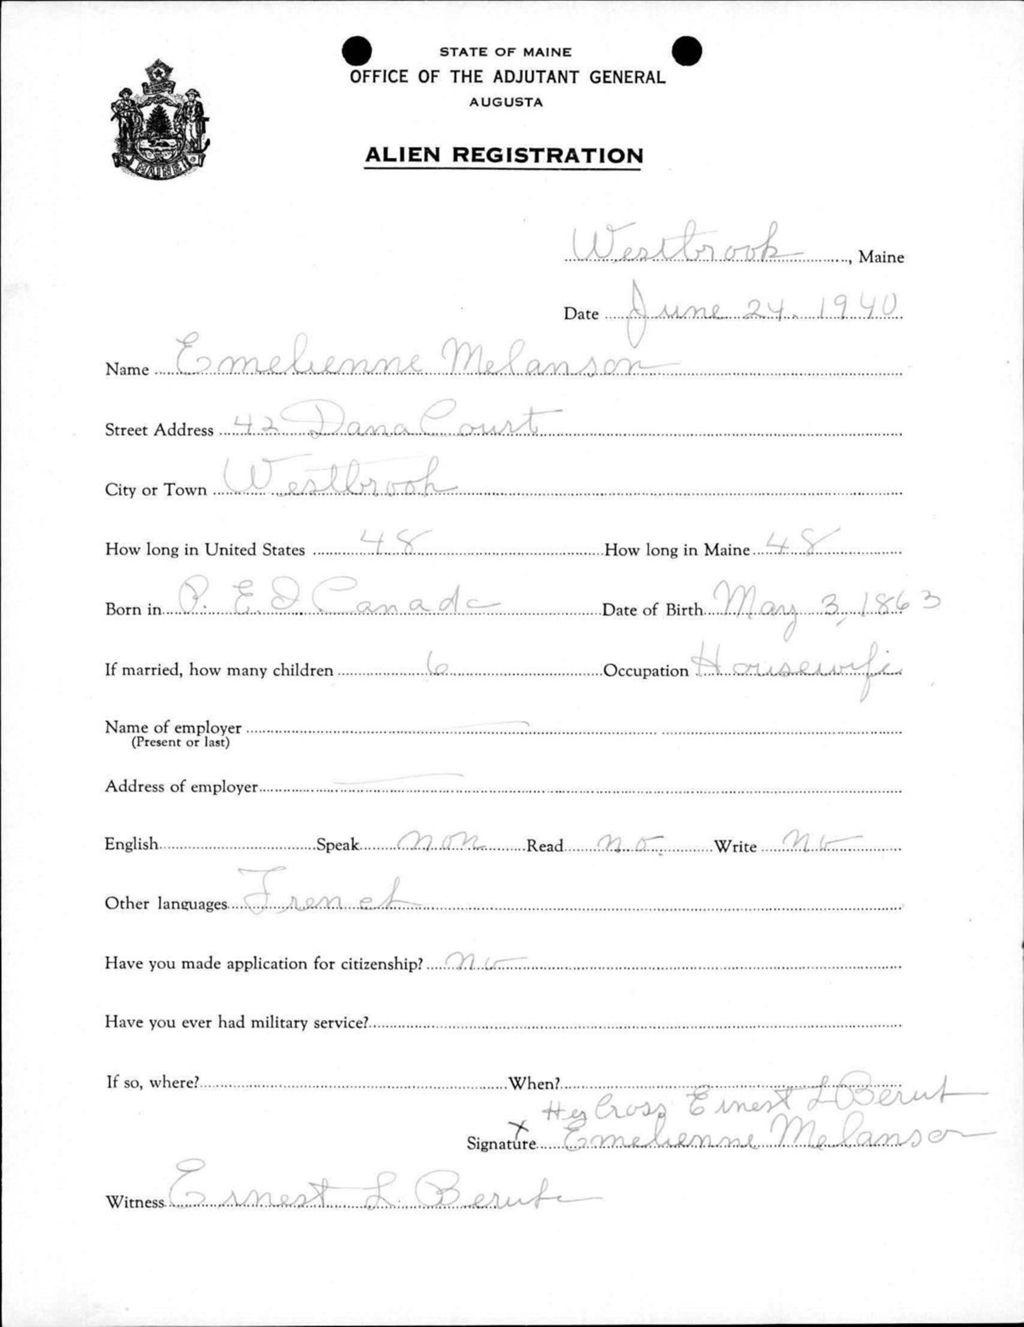 STATE OF MAINE
OFFICE OF THE ADJUTANT GENERAL
AUGUSTA
ALIEN REGISTRATION
MAINE
Westbrook, Maine
Date June 24, 1940
Name Emelienne Melanson
Street Address 42 Dana Court
City or Town Westbrook
How long in United States 48 How long in Maine 48
Born in P. E. I Canada Date of Birth May 3, 1863
If married, how many children 6 Occupation Housewife
Name of employer
(Present or last)
Address of employer
English Speak non Read no. Write No
Other languages French
Have you made application for citizenship? No
Have you ever had military service?
If so, where? When?
Her Cross Ernest L Berube
X
Signature Emelienne Melanson
Witness Ernest L. Berube